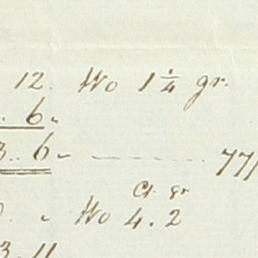 12. Wo 1 1/4 gr.
.. 6 "
3.. 6 " 77/
Ct. gr
" Wo 4. 2
3. 11